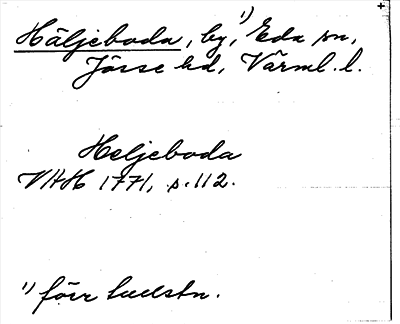 Häljeboda, by,¹) Eda sn,
Jösse hd, Värml. l.
Heljeboda
VHH 1771, s. 112.
¹) förr